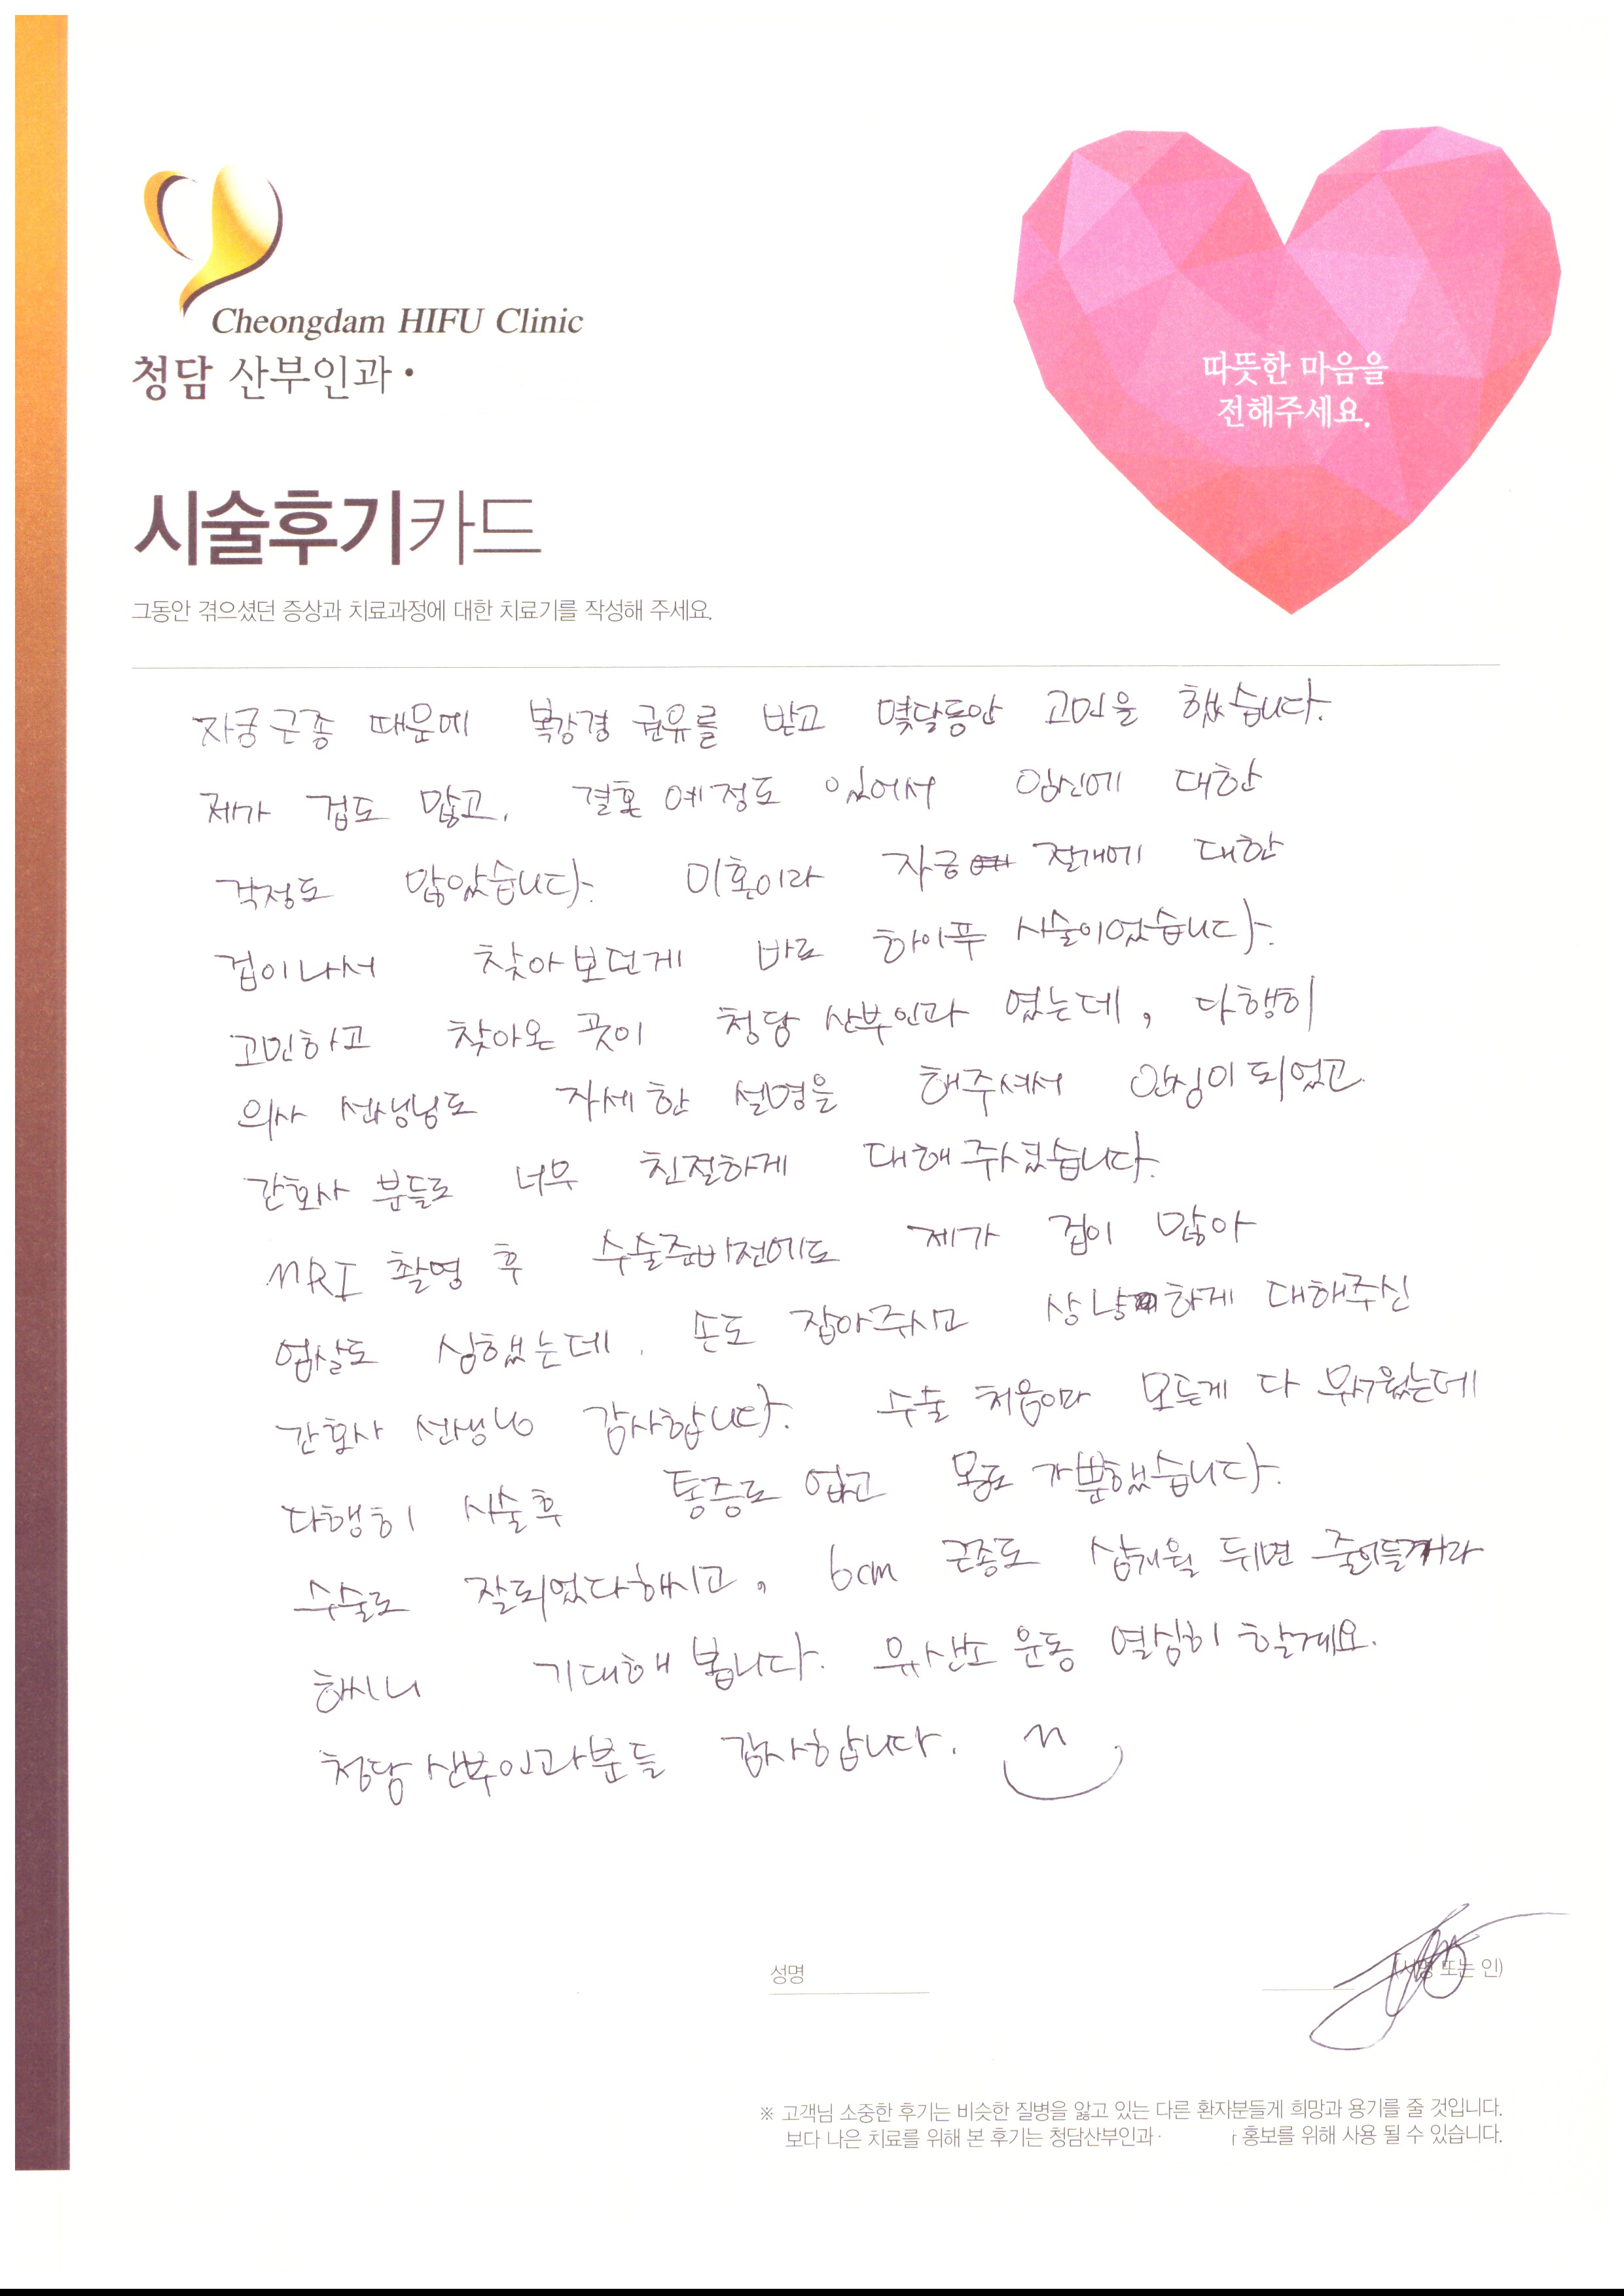 Cheongdam HIFU Clinic
청담 산부인과·
따뜻한 마음을
전해주세요.
시술후기카드
그동안 겪으셨던 증상과 치료과정에 대한 치료기를 작성해 주세요.
자궁근종 때문에 복강경 권유를 받고 몇달동안 고민을 했습니다.
제가 겁도 많고, 결혼예정도 있어서 임신에 대한
걱정도 많았습니다. 미혼이라 자궁 절개에 대한
겁이나서 찾아보던게 바로 하이푸 시술이었습니다.
고민하고 찾아온 곳이 청담 산부인과 였는데, 다행히
의사 선생님도 자세한 설명을 해주셔서 안심이 되었고
간호사 분들도 너무 친절하게 대해주셨습니다.
MRI 촬영 후 수술준비전에도 제가 겁이 많아
엄살도 심했는데, 손도 잡아주시고 상냥하게 대해주신
간호사 선생님 감사합니다. 수술 처음이라 모든게 다 무서웠는데
다행히 시술후 통증도 없고 몸도 가뿐했습니다.
수술도 잘되었다하시고, 6cm 근종도 삼개월 뒤면 줄어들거라
하시니 기대해 봅니다. 유산소 운동 열심히 할게요.
청담산부인과분들 감사합니다.
성명
(서명 또는 인)
※ 고객님 소중한 후기는 비슷한 질병을 앓고 있는 다른 환자분들게 희망과 용기를 줄 것입니다.
보다 나은 치료를 위해 본 후기는 청담산부인과· 홍보를 위해 사용 될 수 있습니다.